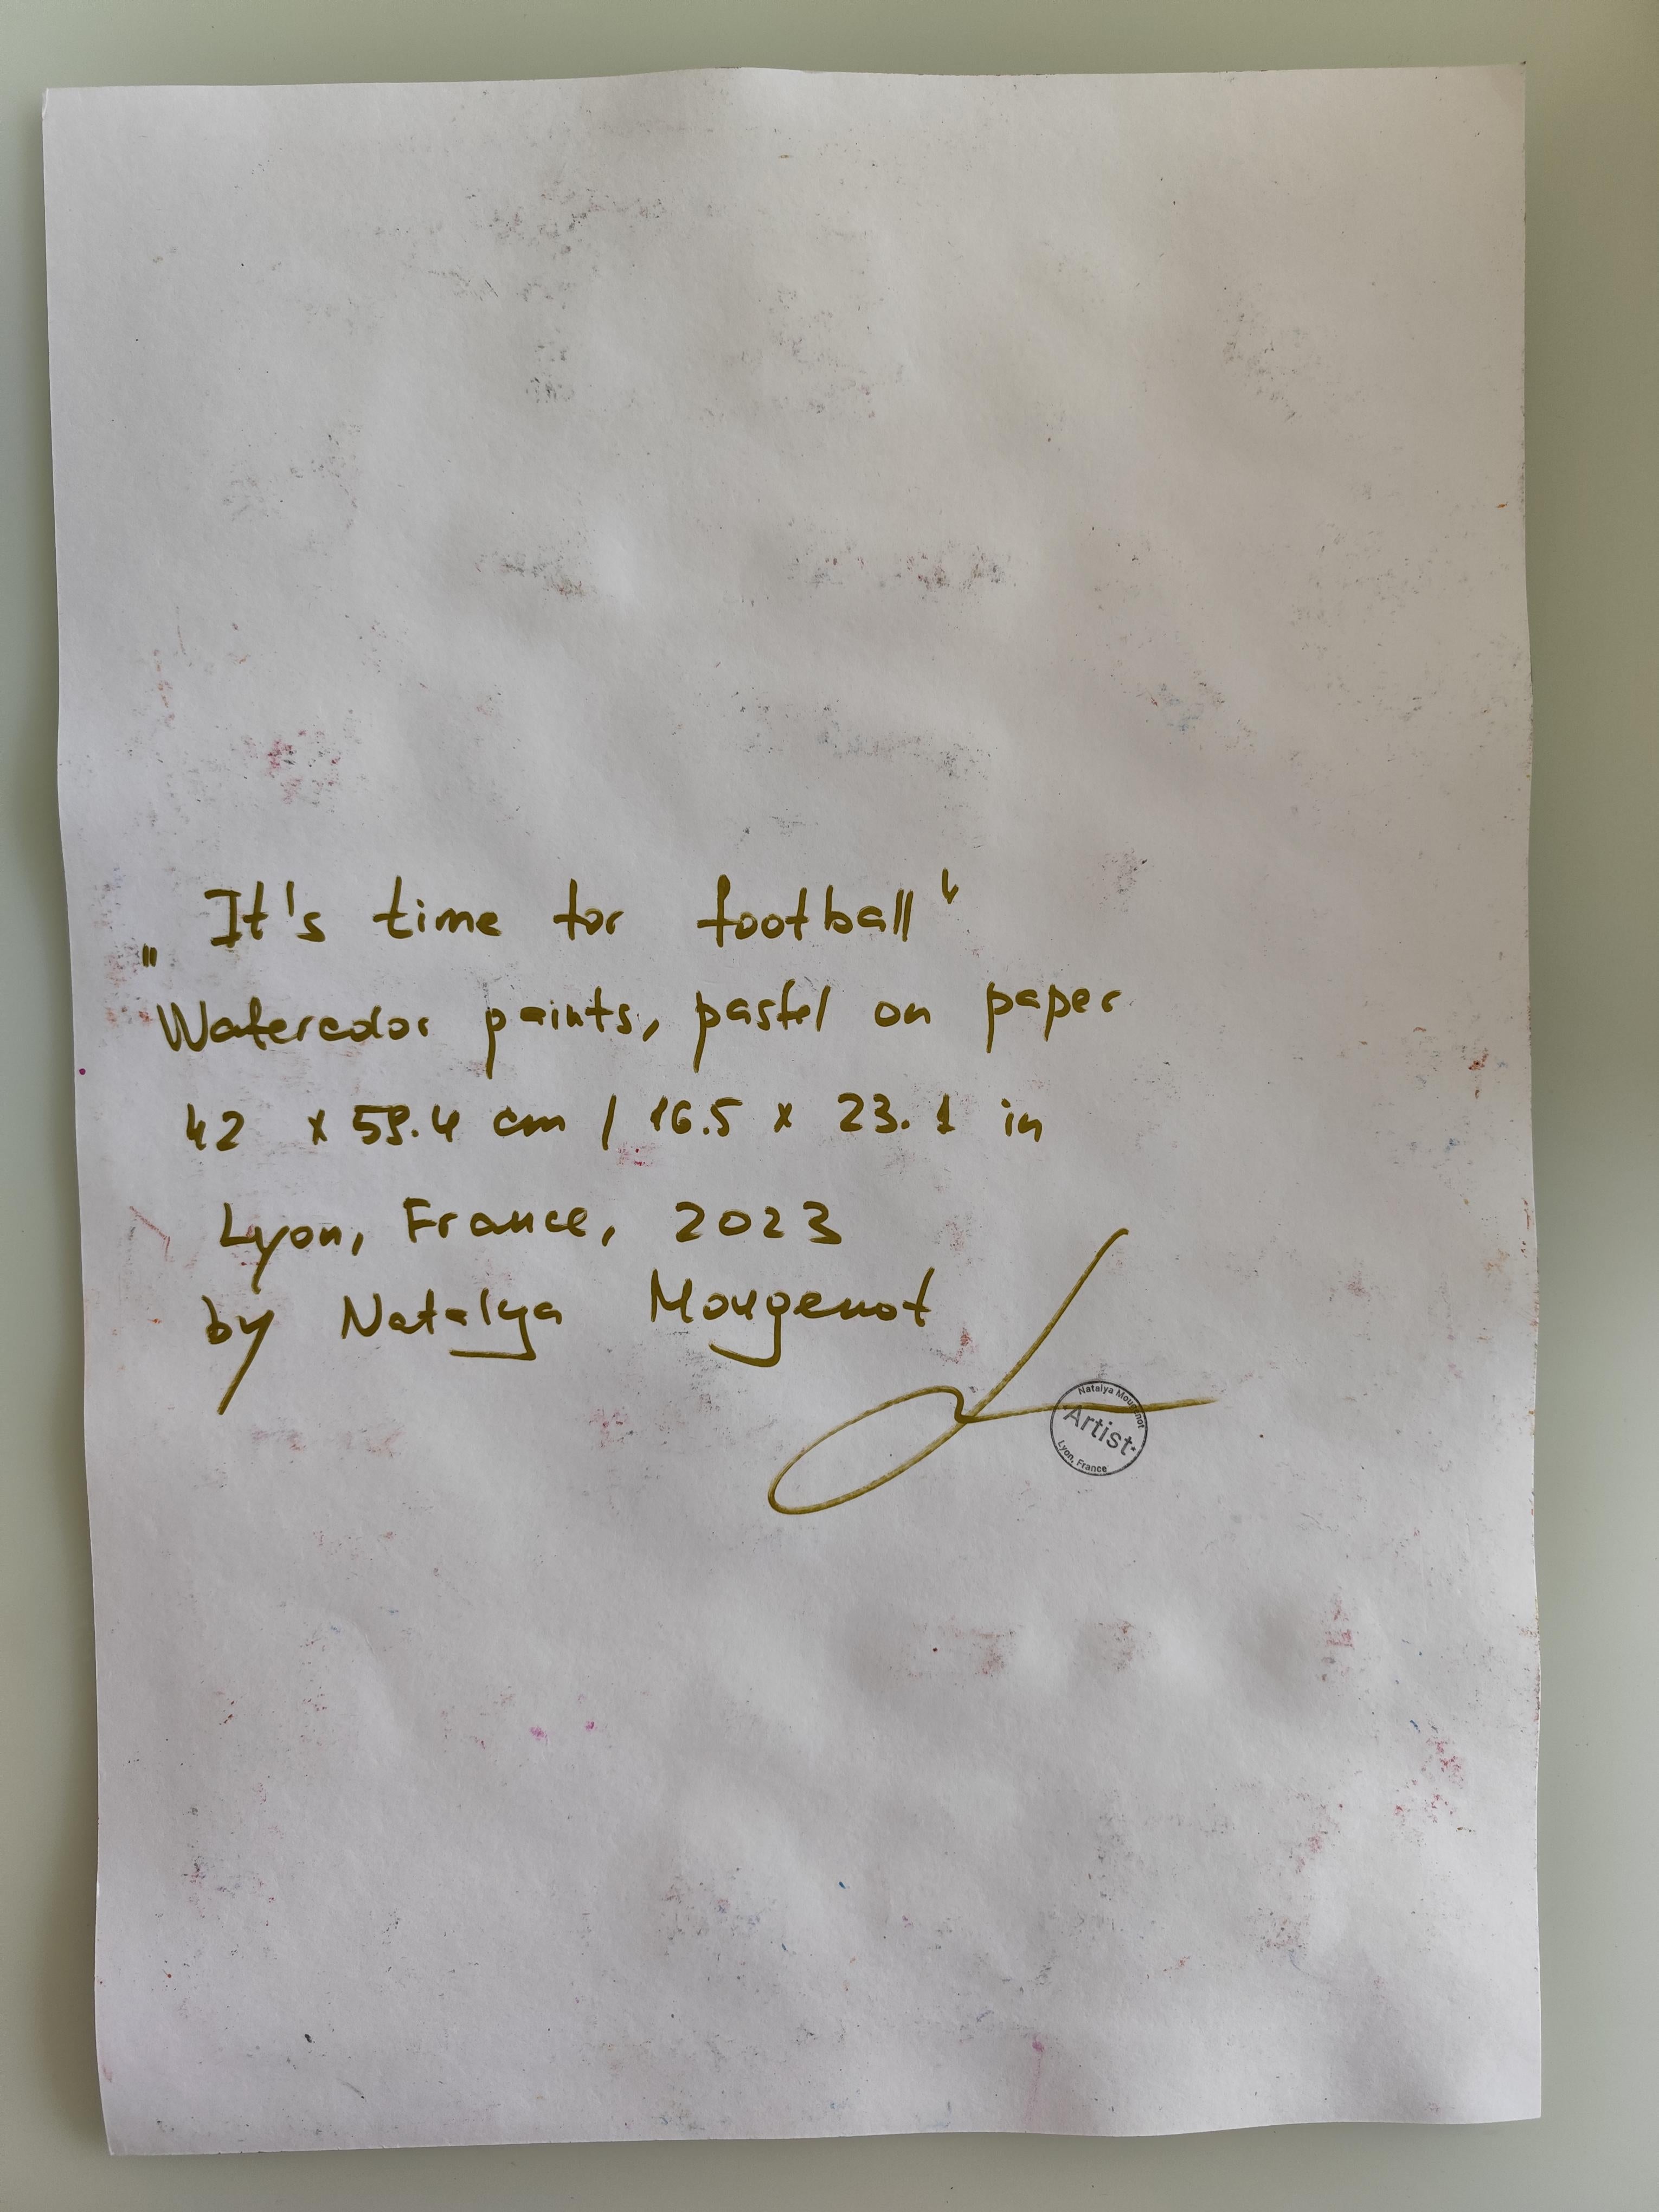 „It's time for football“
Watercolor paints, pastel on paper
42 x 59.4 cm / 16.5 x 23.1 in
Lyon, France, 2023
by Natalya Mougenot
Natalya Mougenot
Artist
Lyon, France